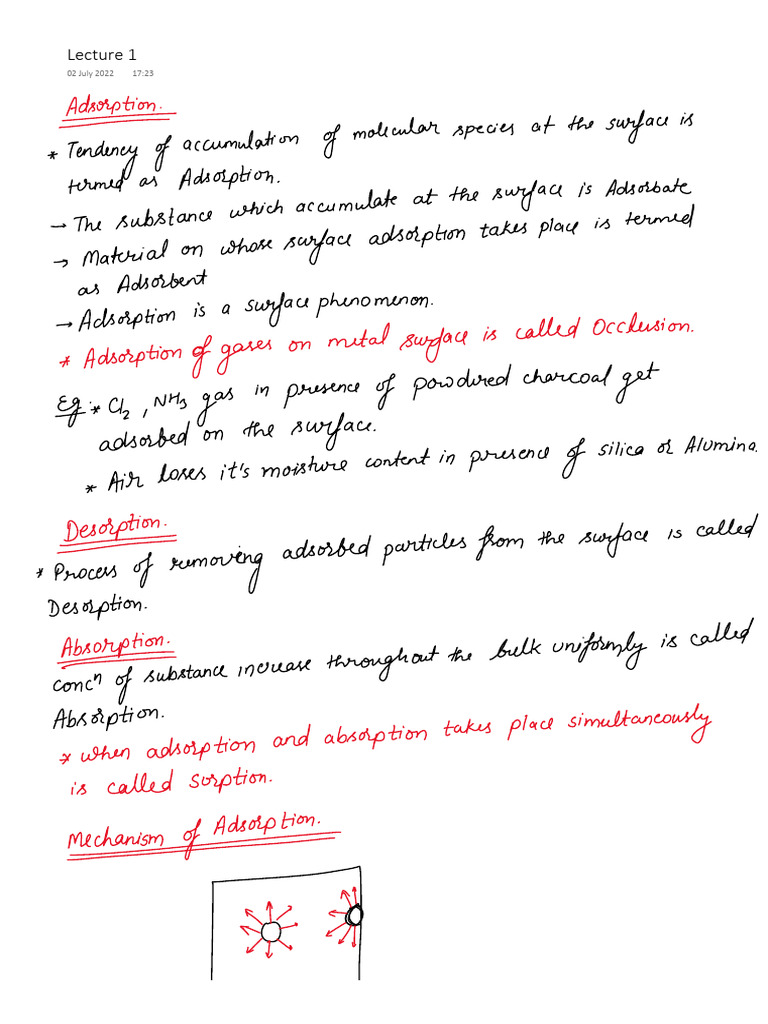 Lecture 1
02 July 2022 17:23
Adsorption.
* Tendency of accumulation of molecular species at the surface is
termed as Adsorption.
→ The substance which accumulate at the surface is Adsorbate
→ Material on whose surface adsorption takes place is termed
as Adsorbent
→ Adsorption is a surface phenomenon.
* Adsorption of gases on metal surface is called Occlusion.
Eg:* Cl2, NH3 gas in presence of powdired charcoal get
adsorbed on the surface.
* Air loses it's moisture content in presence of silica or Alumina.
Desorption.
* Process of removing adsorbed particles from the surface is called
Desorption.
Absorption.
concⁿ of substance increase throughout the bulk uniformly is called
Absorption.
* when adsorption and absorption takes place simultaneously
is called Sorption.
Mechanism of Adsorption.